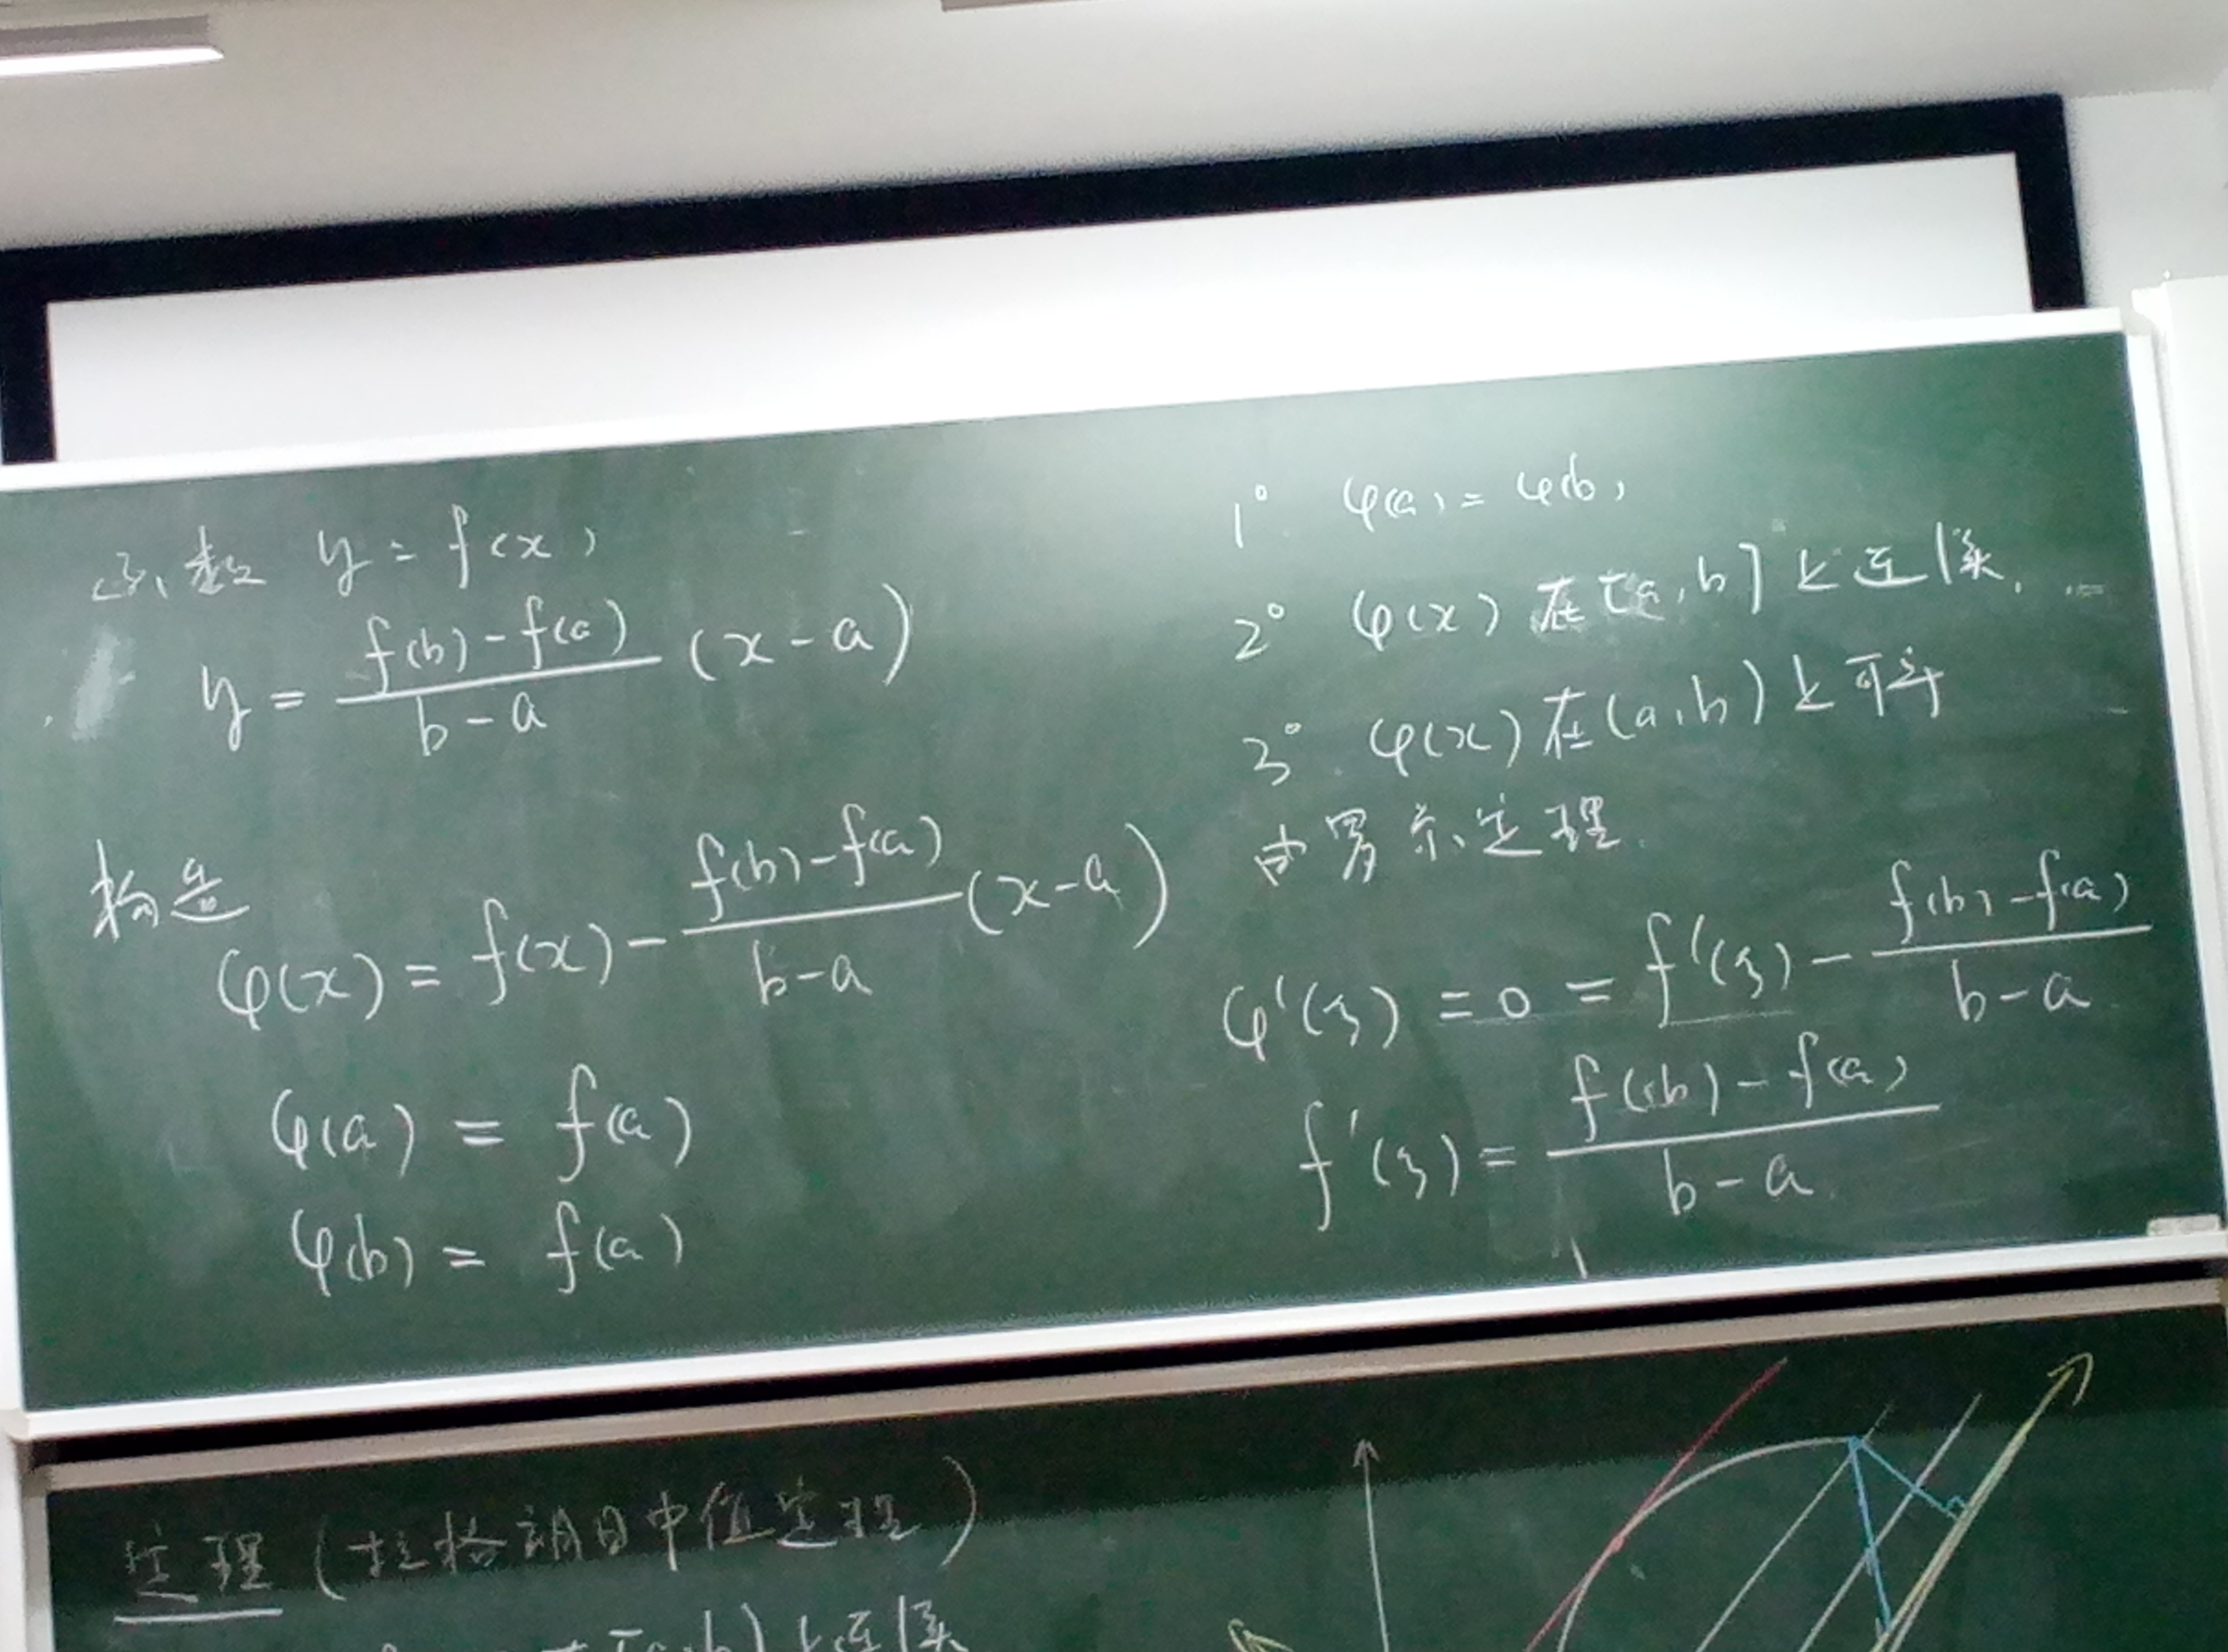 函数 y = f(x)
y = \frac{f(b)-f(a)}{b-a} (x-a)
构造
φ(x) = f(x) - \frac{f(b)-f(a)}{b-a} (x-a)
φ(a) = f(a)
φ(b) = f(a)
1° φ(a) = φ(b)
2° φ(x) 在 [a,b] 上连续.
3° φ(x) 在 (a,b) 上可导
由罗尔定理.
φ'(ξ) = 0 = f'(ξ) - \frac{f(b)-f(a)}{b-a}
f'(ξ) = \frac{f(b)-f(a)}{b-a}
定理 (拉格朗日中值定理)
在 [a,b] 上连续